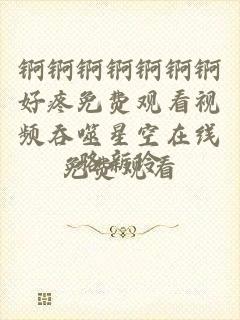 锕锕锕锕锕锕锕
好疼免费观看视
频吞噬星空在线
免费观看